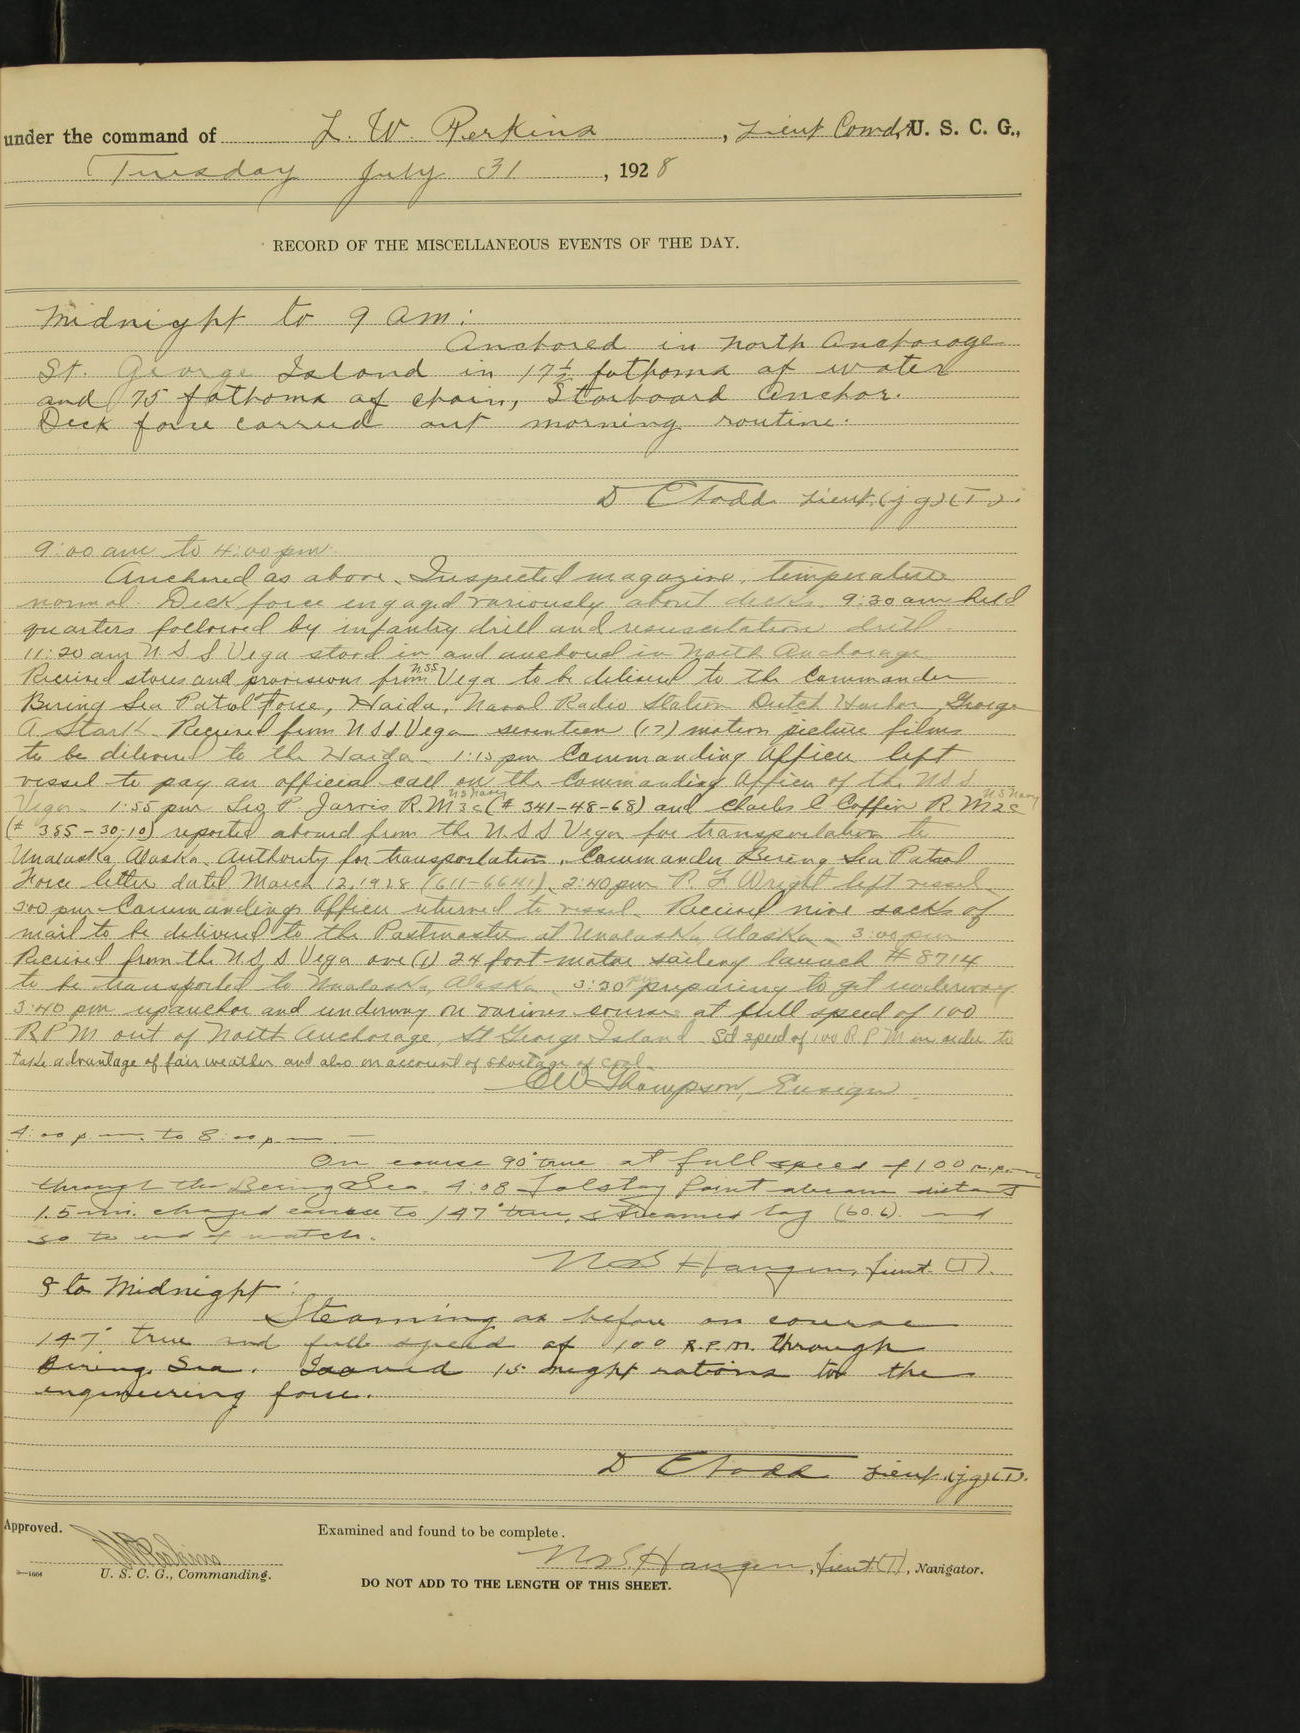 under the command of L. W. Perkins, Lieut Comdr, U. S. C. G.,
Tuesday July 31, 1928
RECORD OF THE MISCELLANEOUS EVENTS OF THE DAY.
Midnight to 9 am:
Anchored in North Anchorage
St. George Island in 17½ fathoms of water
and 75 fathoms of chain, Starboard Anchor.
Deck force carried out morning routine.
D C Todd Lieut. (jg)(T).
9:00 am to 4:00 pm.
Anchored as above. Inspected magazine, temperature
normal. Deck force engaged variously about decks. 9:30 am held
quarters followed by infantry drill and resuscitation drill
11:20 am U.S.S Vega stood in and anchored in North Anchorage
Received stores and provisions from USS Vega to be delivered to the Commander
Bering Sea Patrol Force, Haida, Naval Radio Station Dutch Harbor, George
A Stark. Received from USS Vega seventeen (17) motion picture films
to be delivered to the Haida. 1:15 pm Commanding Officer left
vessel to pay an official call on the Commanding Officer of the USS
Vega. 1:55 pm Geo P. Jarvis R.M 3c US Navy (# 341-48-68) and Charles C Coffin R.M 2c US Navy
(# 385-30-10) reported aboard from the U.S.S Vega for transportation to
Unalaska, Alaska. Authority for transportation, Commander Bering Sea Patrol
Force letter dated March 12, 1928 (611-6641). 2:40 pm R. F. Wright left vessel.
300 pm Commanding Officer returned to vessel. Received nine sacks of
mail to be delivered to the Postmaster at Unalaska, Alaska. 3:00 pm
Received from the U.S.S Vega one (1) 24 foot motor sailing launch # 8714
to be transported to Unalaska, Alaska. 3:30 pm preparing to get underway
3:40 pm up anchor and underway on various courses at full speed of 100
R.P.M out of North Anchorage, St George Island. Set speed of 100 R.P.M in order to
take advantage of fair weather and also on account of shortage of coal.
C.W. Thompson, Ensign
4:00 p.m. to 8:00 p.m. —
On course 90° true at full speed of 100 r.p.m.
through the Bering Sea. 4:08 Tolstoy Point abeam distant
1.5 mi. changed course to 147° true, streamed log (60.6) and
so to end of watch.
N.S. Haugen, Lieut. (T).
8 to Midnight:
Steaming as before on course
147° true and full speed of 100 R.P.M. through
Bering Sea. Issued 15 night rations to the
engineering force.
D C Todd Lieut. (jg)(T).
Approved.
Examined and found to be complete.
L W Perkins
N.S. Haugen, Lieut (T), Navigator.
U. S. C. G., Commanding.
DO NOT ADD TO THE LENGTH OF THIS SHEET.